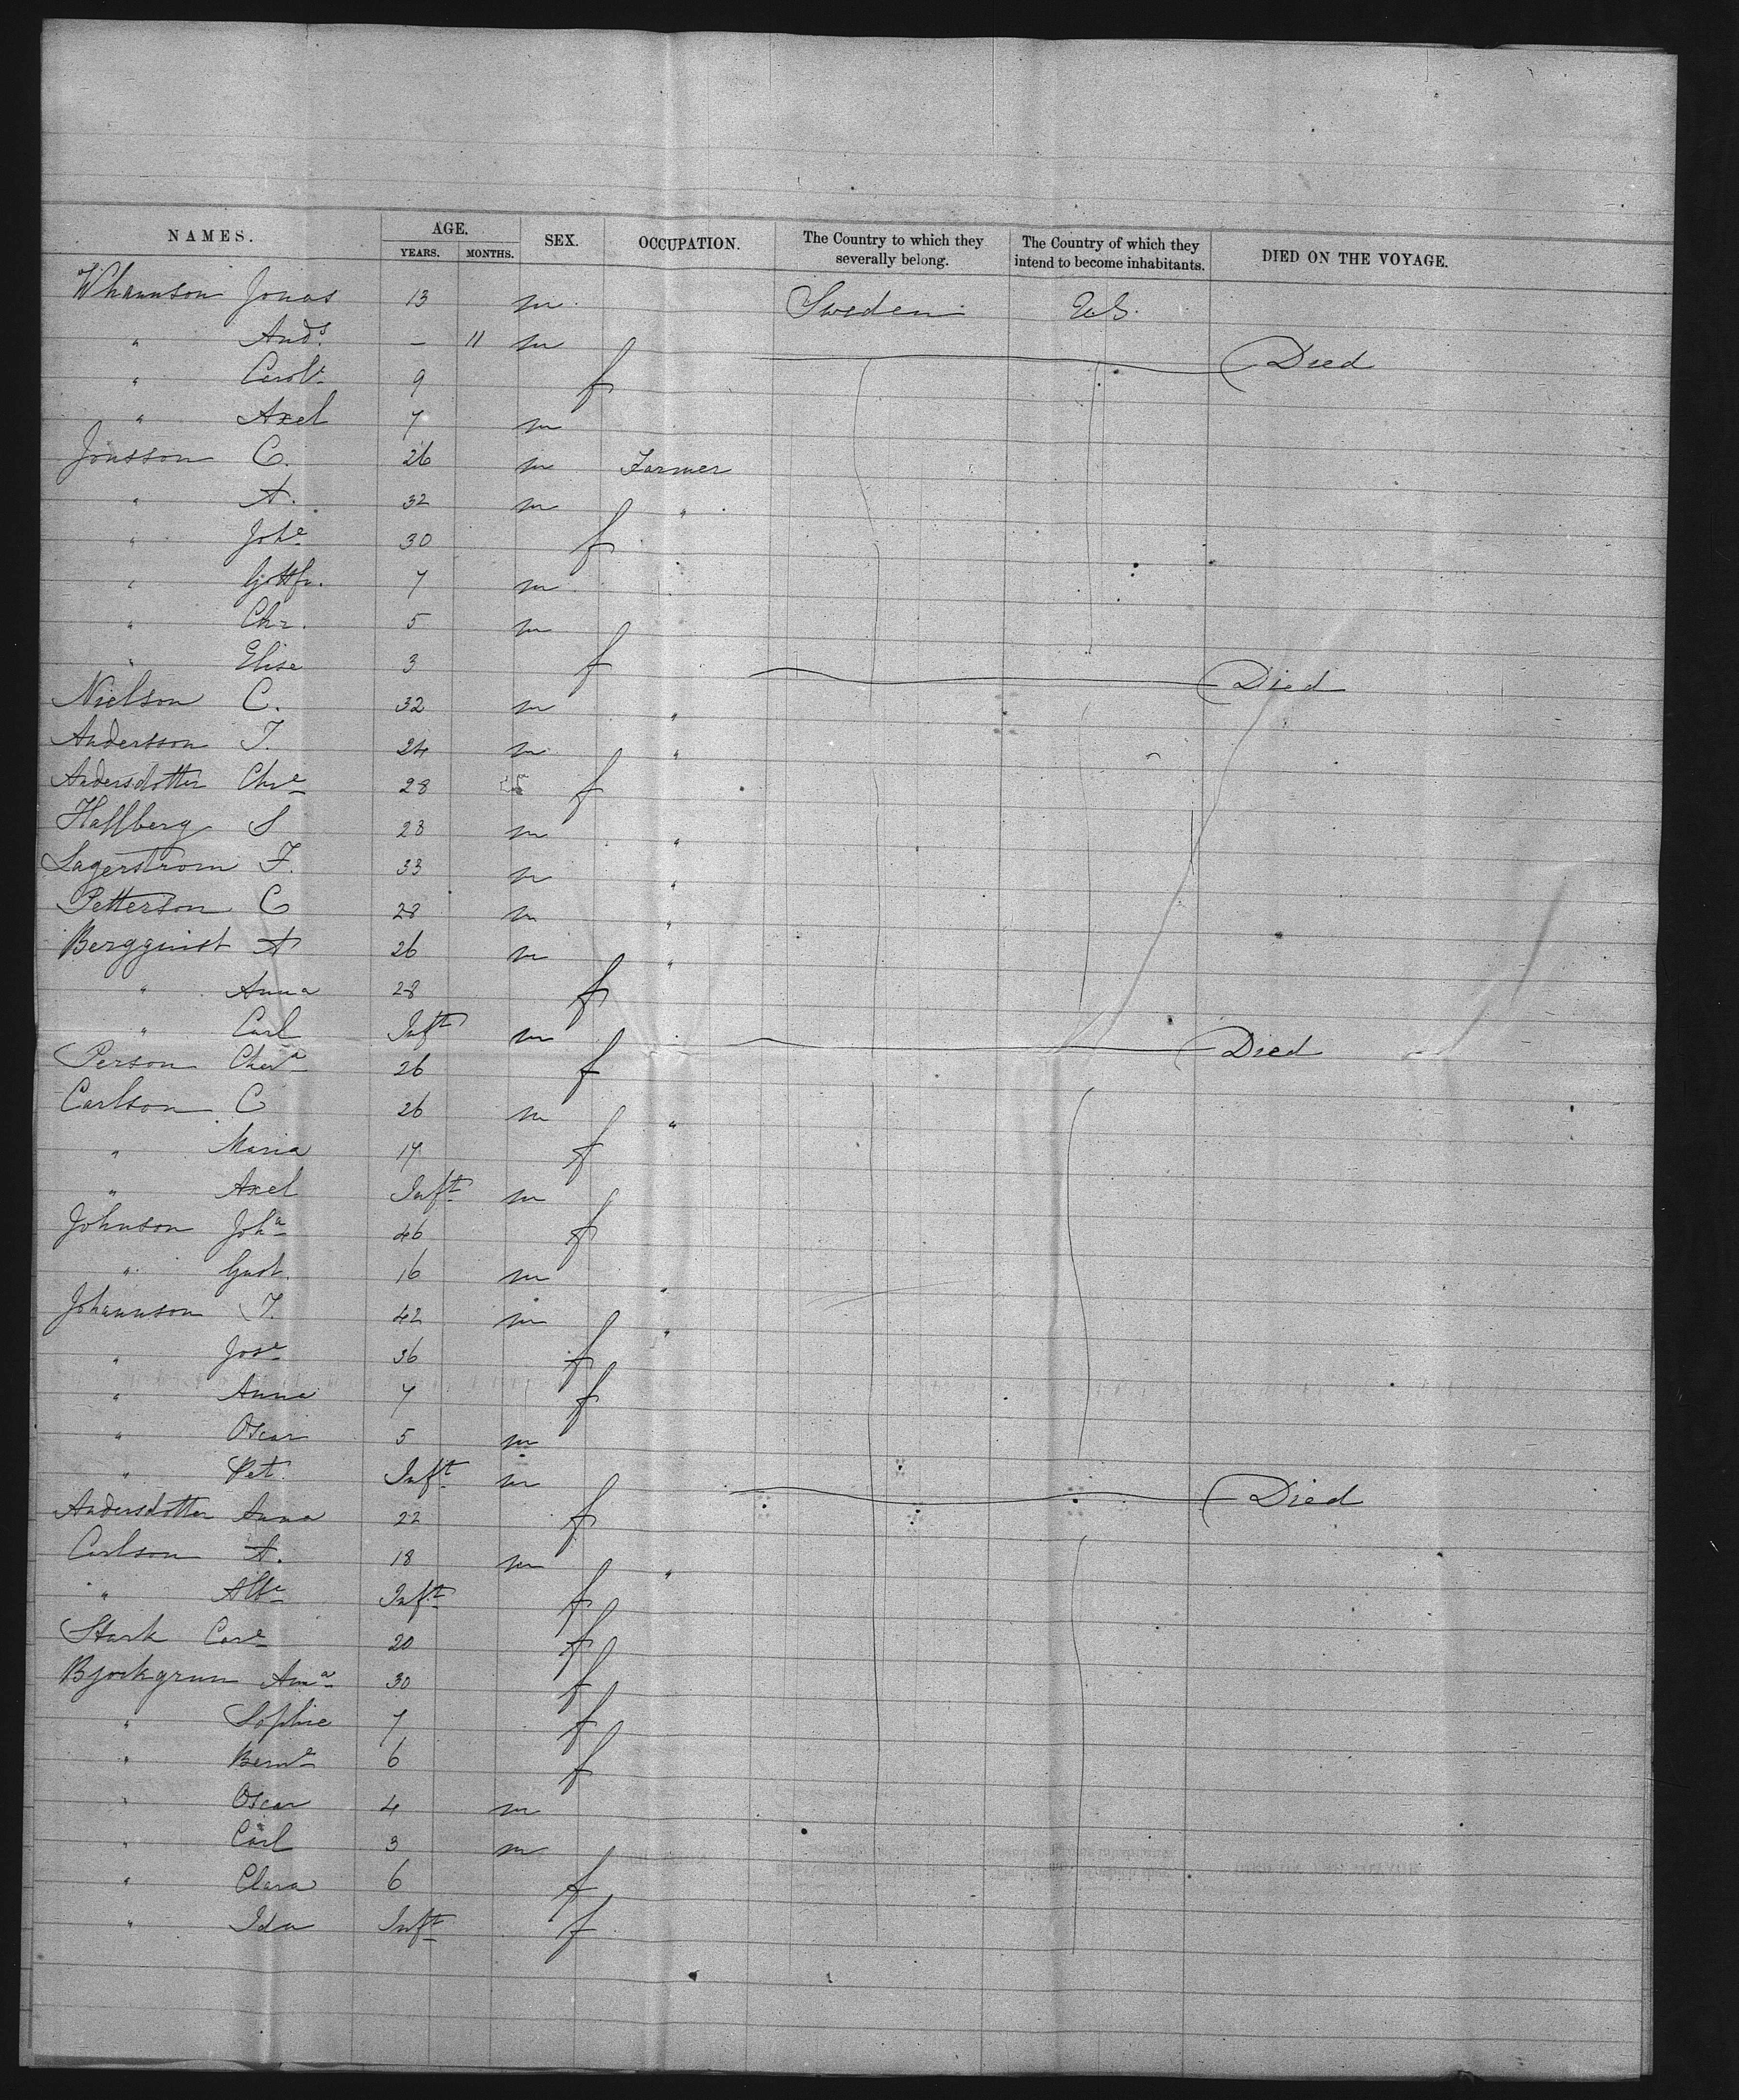 NAMES. AGE. YEARS. MONTHS. SEX. OCCUPATION. The Country to which they severally belong. The Country of which they intend to become inhabitants. DIED ON THE VOYAGE.
Jonas 13 m Sweden U.S.
" And.s — 11 m Died
" 9 f
" Axel 7 m
Jonsson C. 26 m Farmer
" A. 32 m "
" Joh.e 30 f
" Gottfr. 7 m
" Chr. 5 m
" Elise 3 f Died
Nielson C. 32 m "
Andersson J. 24 m "
Andersdotter Chr.e 28 f
Hallberg S 28 m "
Lagerstrom F. 33 m "
Petterson C 28 m "
Bergquist A 26 m "
" Anna 28 f
" Carl Inft m Died
Person 26 f
Carlson C 26 m "
" Maria 17 f
" Axel Inft m
Johnson Joh.a 46 f
" Gust. 16 m "
Johannson J. 42 m "
" Jos.e 36 f
" Anna 7 f
" Oscar 5 m
" Pet. Inft m Died
Andersdotter Anna 22 f
Carlson A. 18 m "
" Inft f
Stark Car.e 20 f
Bjorkgrun 30 f
" Sophie 7 f
" 6 f
" Oscar 4 m
" Carl 3 m
" Clara 6 f
" Ida Inft f